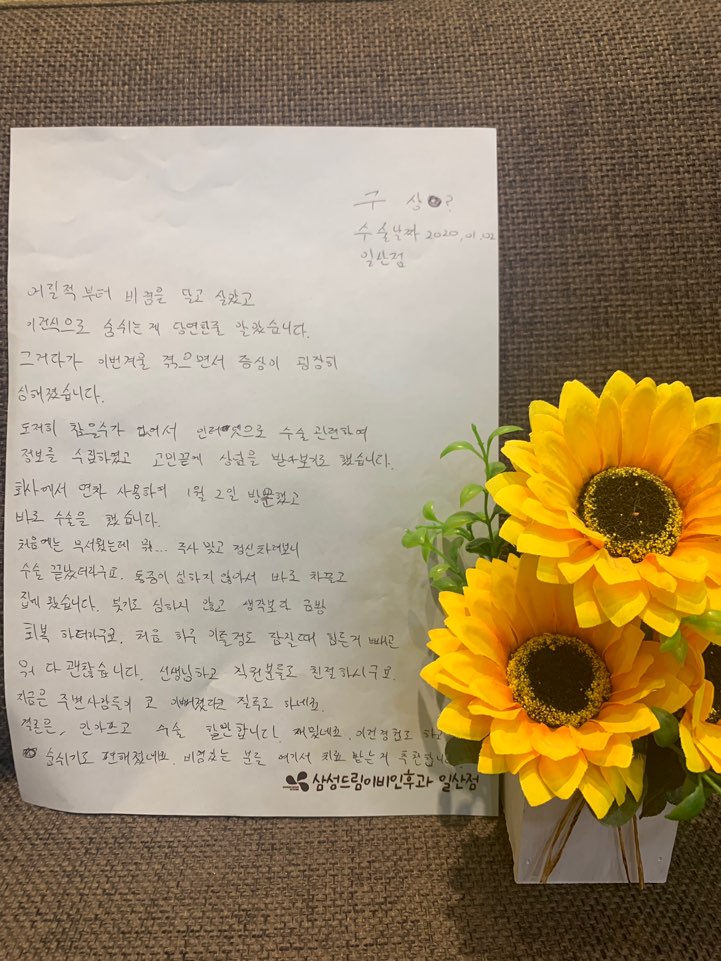 구 상?
수술날짜 2020.01.02
일산점
어릴적부터 비염을 달고 살았고
이런식으로 숨쉬는게 당연한줄 알았습니다.
그러다가 이번겨울 겪으면서 증상이 굉장히
심해졌습니다.
도저히 참을수가 없어서 인터넷으로 수술 관련하여
정보를 수집하였고 고민끝에 상담을 받아보기로 했습니다.
회사에서 연차 사용하여 1월 2일 방문했고
바로 수술을 했습니다.
처음에는 무서웠는데 뭐... 주사 맞고 정신차려보니
수술 끝났더라구요. 통증이 심하지 않아서 바로
집에 왔습니다. 붓기도 심하지 않고 생각보다 금방
회복 하더라구요. 처음 하루 이틀정도 잠잘때 힘든거 빼곤
뭐 다 괜찮습니다. 선생님하고 직원분들도 친절하시구요.
지금은 주변사람들이 코 이뻐졌다고 질문도 하네요.
결론은, 안아프고 수술 할만합니다. 재밌네요. 이런경험도 하고
숨쉬기도 편해졌네요. 비염있는 분들 여기서 치료 받는거
삼성드림이비인후과 일산점